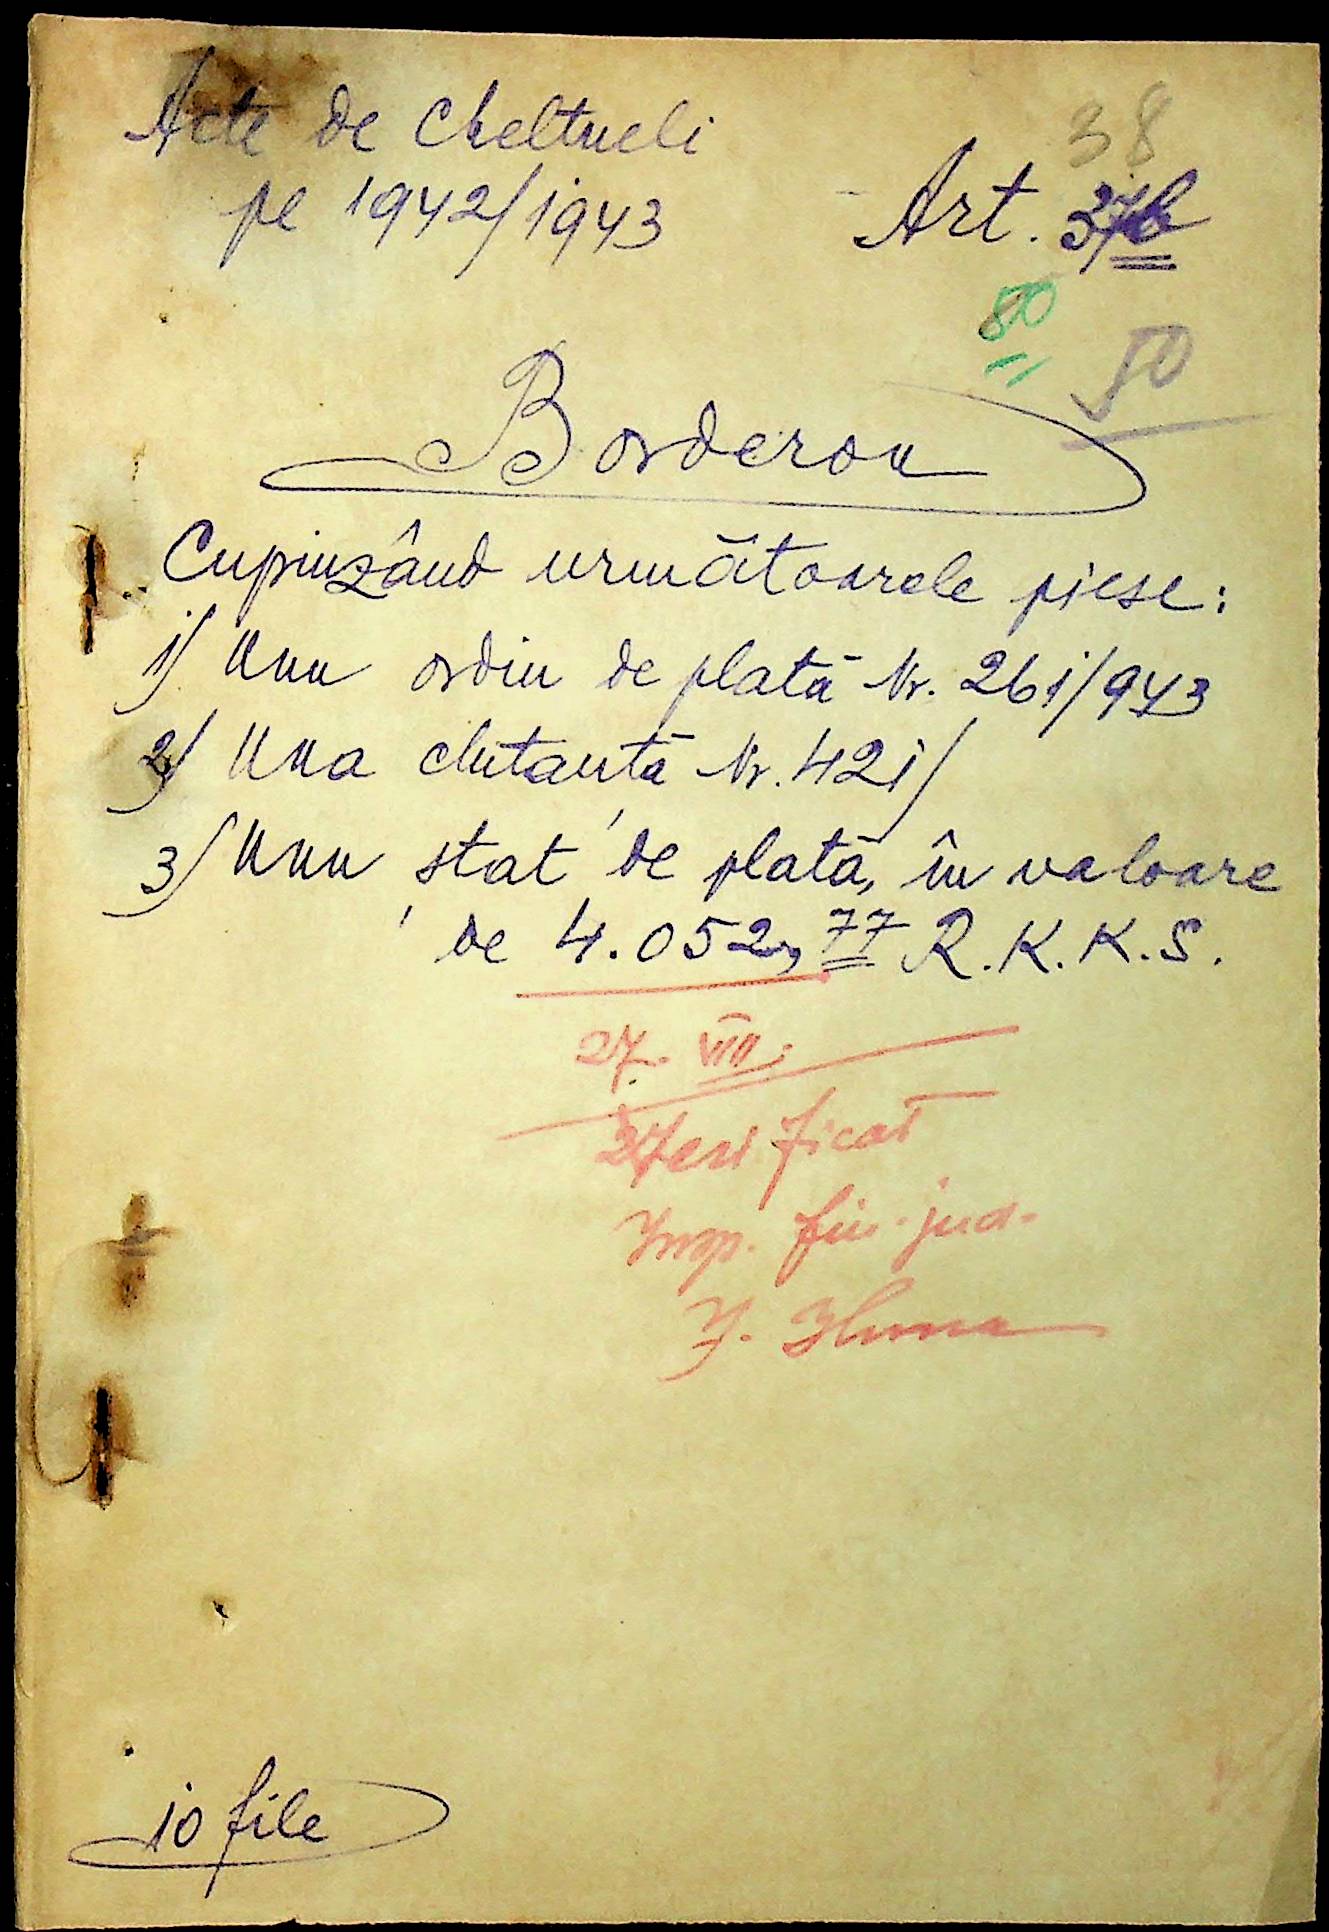 38
Acte de Cheltueli
pe 1942/1943
Art. 37b
50
50
Borderou
Cuprinzând următoarele piese:
1) Unu ordin de plată Nr. 261/943
2) Una chitantă Nr. 421/
3) Unu stat de plată, în valoare
de 4.052,77 R.K.K.S.
27. VIII.
Verificat
Insp. fin. jud.
10 file